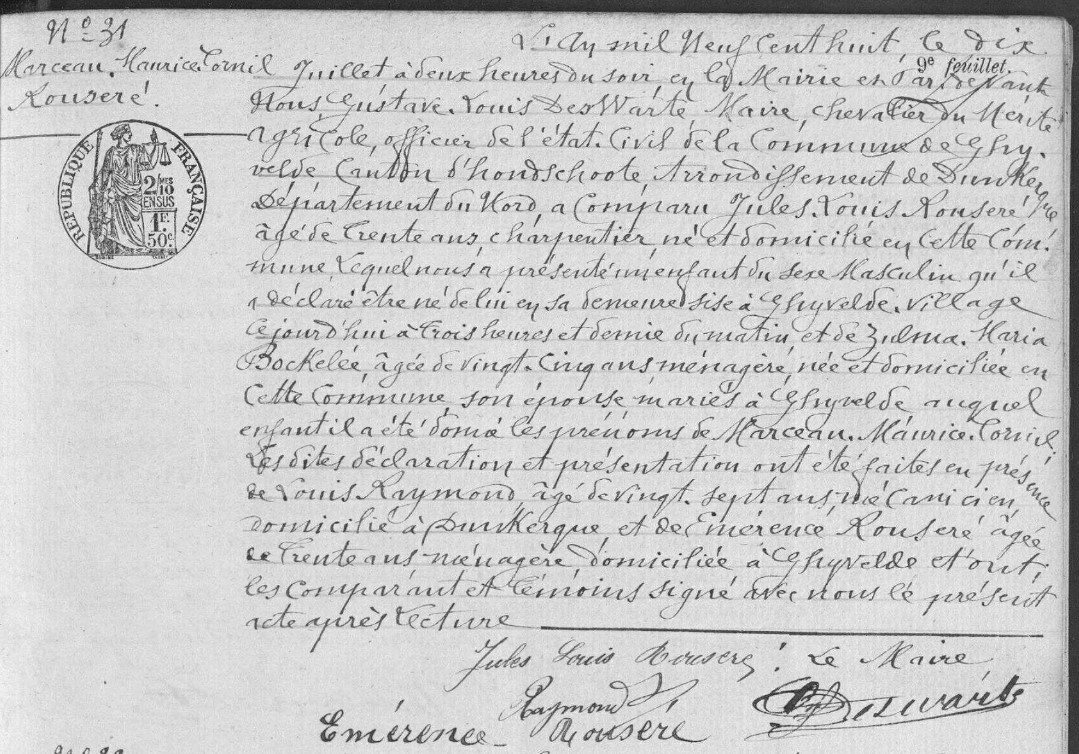 N° 31
Marceau. Maurice. Cornil
Rouseré.
RÉPUBLIQUE FRANÇAISE
2/10 MES
EN SUS
1F.
50c
9e feuillet.
L'An mil Neuf Cent huit, le dix
Juillet à deux heures du soir, en la Mairie en Par devant
Nous Gustave. Louis DesWarte Maire, chevalier du Mérite
agricole, officier de l'état. Civil de la Commune de Ghy.
velde Canton d'hondschoote Arrondissement de Dunkerque
Département du Nord, a Comparu Jules. Louis Rouseré
âgé de trente ans, charpentier, né et domicilié en Cette Com.
mune, Lequel nous a présenté un enfant du sexe Masculin qu'il
a déclaré être né de lui en sa demeure sise à Ghyvelde. village
Cejourd'hui à trois heures et demie du matin, et de Zulma. Maria
Bockelée, âgée de vingt. Cinq ans ménagère, née et domiciliée en
Cette Commune son épouse mariés à Ghyvelde auquel
enfant il a été donné les prénoms de Marceau. Maurice. Cornil.
Les dites déclaration et présentation ont été faites en présence
de Louis Raymond, âgé de vingt. sept ans, mécanicien,
domicilié à Dunkerque et de Emérence Rouseré âgée
de trente ans ménagère domiciliée à Ghyvelde et ont,
les Comparant et témoins signé avec nous le présent
acte après Lecture
Jules Louis Rouseré. Le Maire
Raymond
Deswarte
Emérence Rouseré